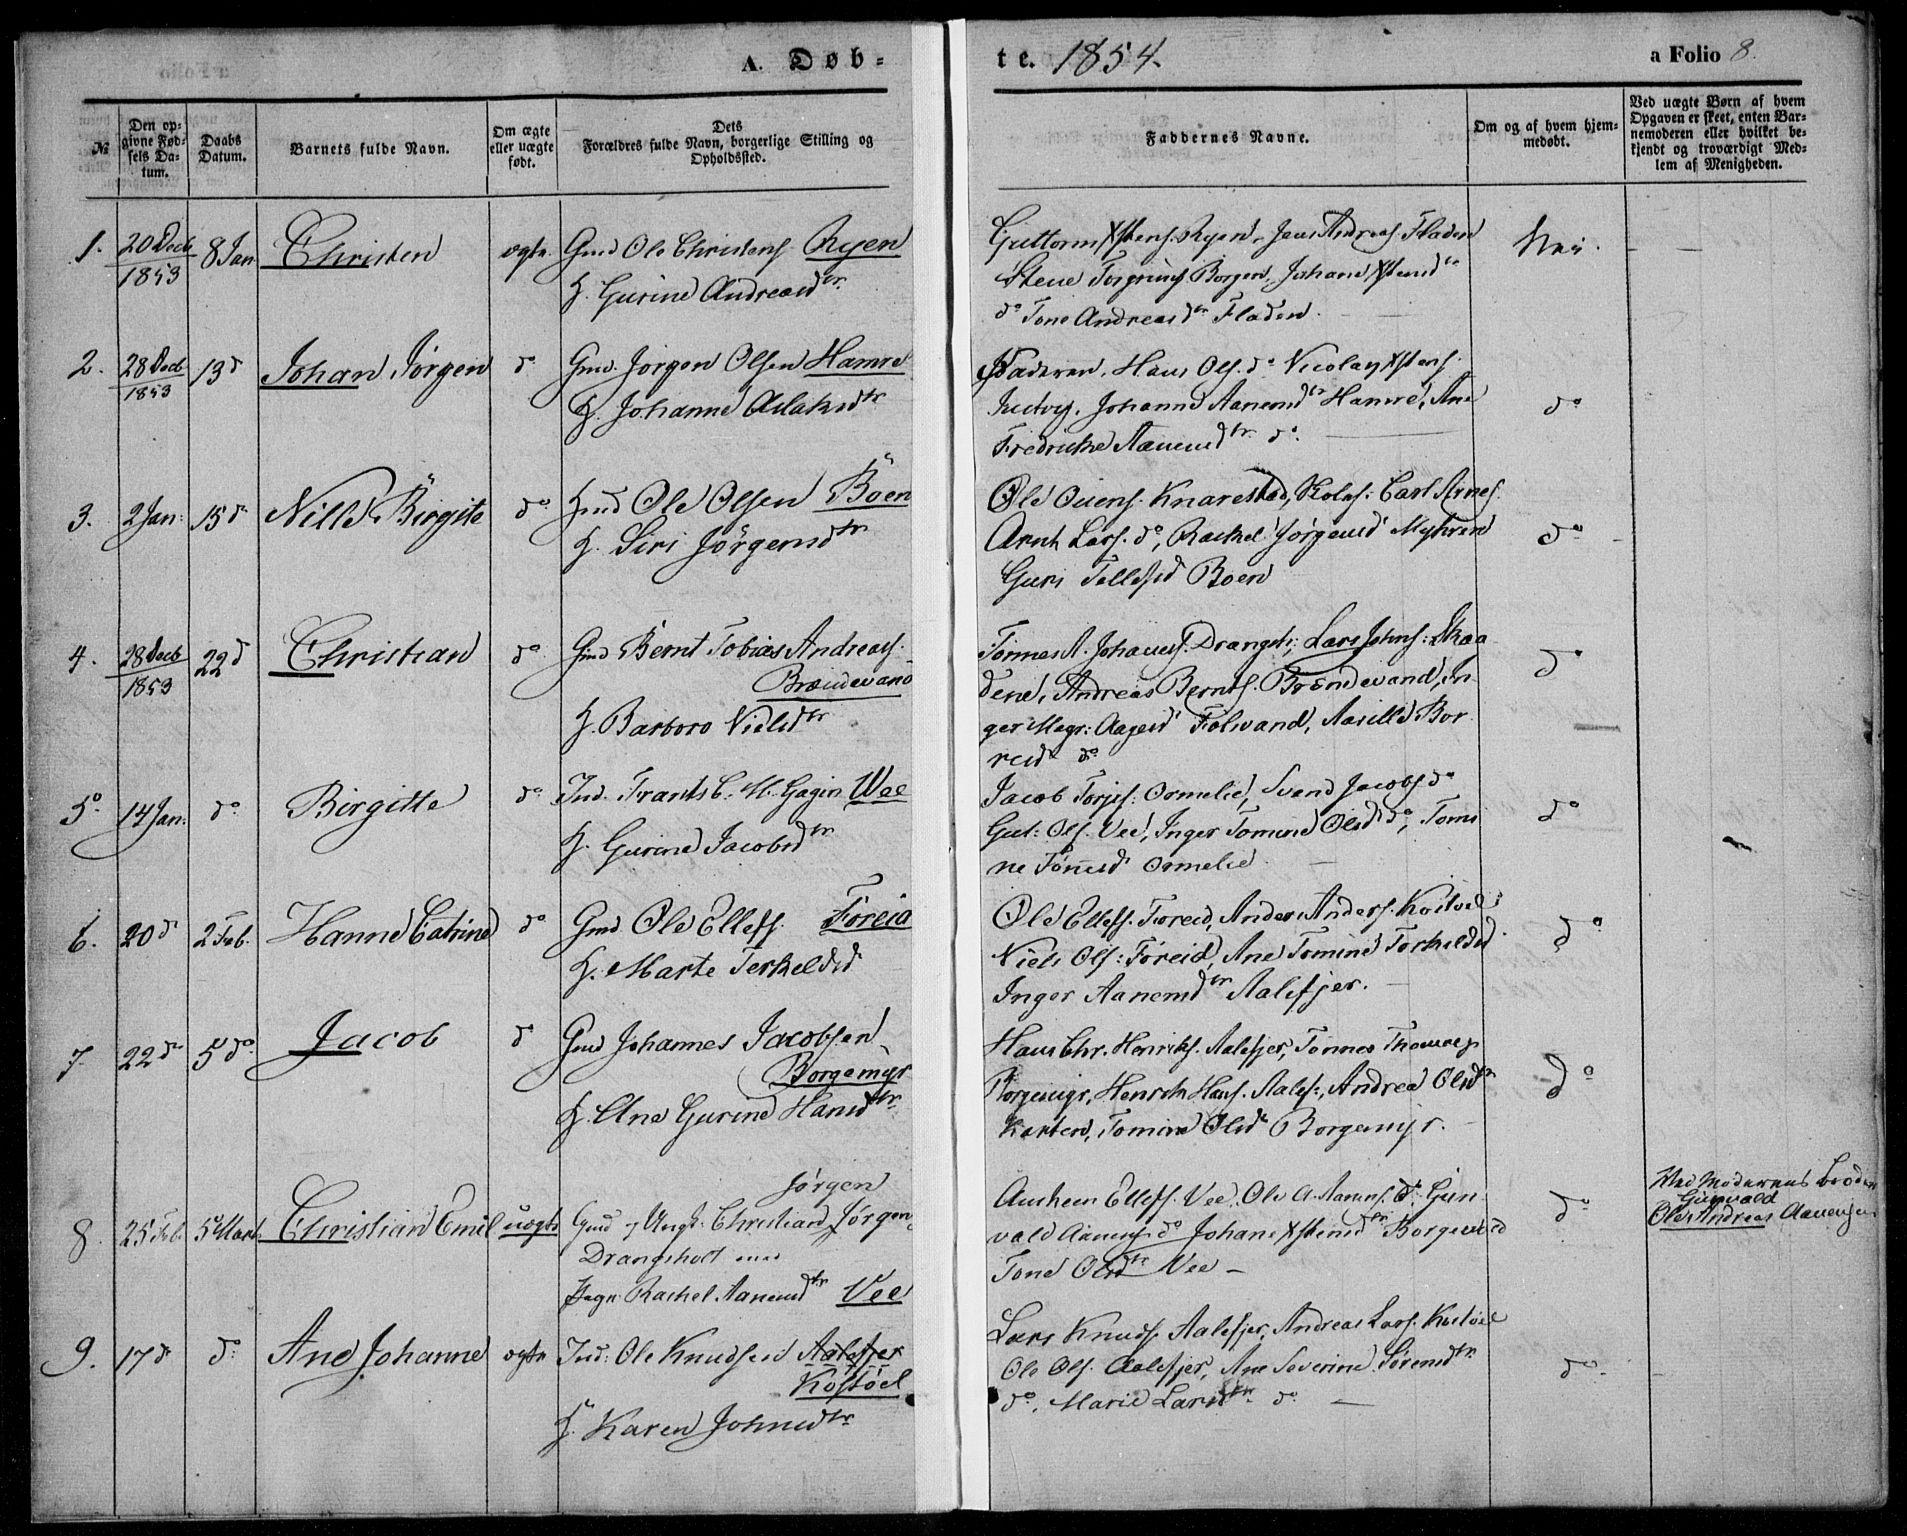 A. Døb-
te. 1854.
a Folio 8.
№
Den op-
givne Fød-
sels Da-
tum.
Daabs
Datum.
Barnets fulde Navn.
Om ægte
eller uægte
født.
Dets
Forældres fulde Navn, borgerlige Stilling og
Opholdssted.
Faddernes Navne.
Om og af hvem hjem-
medøbt.
Ved uægte Børn af hvem
Opgaven er skeet, enten Bar-
nemoderen eller hvilket be-
kjendt og troværdigt Med-
lem af Menigheden.
1. 20 Decb 1853 8 Jan Christen ægte Gmd Ole Christens. Ryen
H. Gurine Andreasdtr
Guttorm Xstens. Ryen, Jens Andreas. Fladen
Torgrims. Borgen, Johane Xstensdtr
do Tone Andreasdtr Fladen.
Nei.
2. 28 Decb 1853 13 d Johan Jørgen do Gmd. Jørgen Olsen Hamre
H. Johanne Aslaksdtr
Faderen, Hans Ols. do Nicolay Xstens.
Johanne Aanensdtr Hamre, Ane
Fredrikke Aanensdtr do.
do
3. 2 Jan: 15 d. Nille Birgite do Gmd Ole Olsen Böen
H. Siri Jörgensdtr
Ole Ouens. Knarestad, Skoles: Carl Arnes.
Arnt Lars. do, Rachel Jörgensd Myhren
Guri Tellefsd Boen
do
4. 28 Decb 1853 22 d Christian do Gmd Bernt Tobias Andreas.
Brændevand
H. Barbro Nielsdtr
Tønnes A. Johannes. Drangsh:, Lars Johns: Skaa
dene, Andreas Bernts. Brændevand, In
ger Magr: Aagesd Folvand, Aasille Bor
reid do
do
5. 14 Jan: do. Birgitte do Ind. Frants C. M. Gagin Wee
H. Gurine Jacobsdtr
Jacob Torjes: Ormelie, Svend Jacobs. do
Gut: Ols. Vee, Inger Tomine Olsd do, Tomi
ne Tønnesd Ormelie.
do
6. 20 d 2 Feb. Hanne Catrine do Gmd Ole Ellefs. Foreid
H. Marte Terkeldsd
Ole Ellefs. Foreid, Anders Anders. Kostøel
Niels Ols: Foreid, Ane Tomine Torkeldsd
Inger Aanensdtr Aalefjer.
do
7. 22 d 5 do Jacob d Gmd Johannes Jacobsen
Borgemyr
H. Ane Gurine Hansdtr
Hans Chr. Henriks. Aalefjer, Tønnes Thomas.
Borgemyr, Henrik Hans. Aalef:, Andrea Olsdtr
Karten, Tomine Olsdtr Borgemyr.
do
8. 25 Feb. 5 Mart. Christian Emil uægte Gmd og Ungk: Christian Jørgen
Jørgen
Drangsholt med
Pige Rachel Aanensdtr Vee
Ellefs. Vee, Ole A. Aanens. do Gun
vald Aanens. do Johane Xstensdtr Borgevold
Tone Olsdtr Vee
do
Ved Moderens Broder
Gunvald
Ole Andreas Aanensen
9. 17 d do Ane Johanne ægte Ind: Ole Knudsen Aalefjer
Kostöel
H. Karen Johnsdtr
Lars Knuds. Aalefjer, Andreas Lars. Kostøel
Ole Ols. Aalefjer, Ane Severine Sørensdtr
do, Marie Larsdtr do.
do